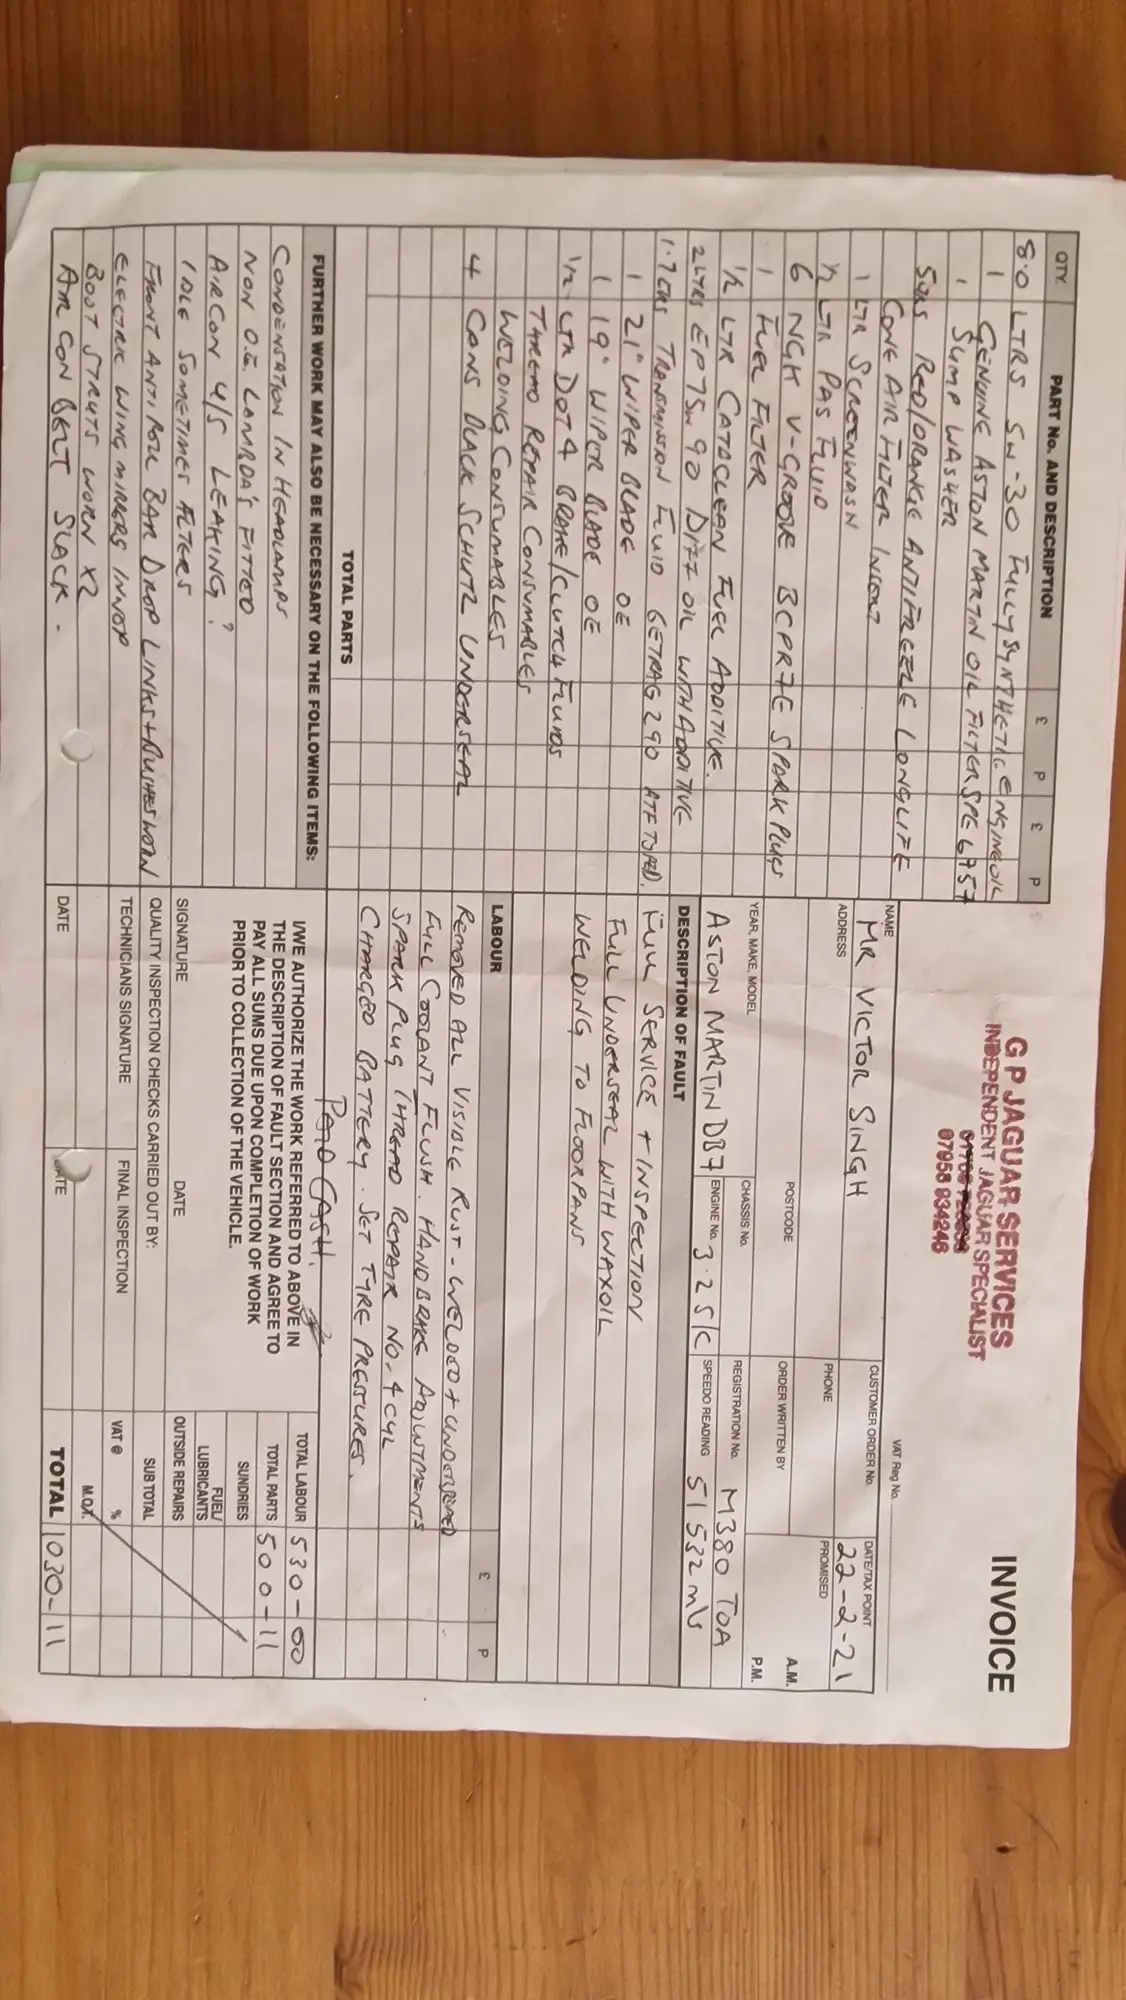 G P JAGUAR SERVICES
INDEPENDENT JAGUAR SPECIALIST
07958 934246
INVOICE
VAT Reg No.
QTY.
PART No. AND DESCRIPTION
£
P
£
P
8.0 LTRS 5W-30 FULLY SYNTHETIC ENGINE OIL
1 GENUINE ASTON MARTIN OIL FILTER SPE 6757
1 SUMP WASHER
5LTRS RED/ORANGE ANTIFREEZE LONGLIFE
CONE AIR FILTER INSERT
1 LTR SCREENWASH
1/2 LTR PAS FLUID
6 NGK V-GROOVE BCPR7E SPARK PLUGS
1 FUEL FILTER
1/2 LTR CATACLEAN FUEL ADDITIVE.
2 LTRS EP75W90 DIFF OIL WITH ADDITIVE
1.7 LTRS TRANSMISSION FLUID GETRAG 290
1 21" WIPER BLADE OE
1 19" WIPER BLADE OE
1/2 LTR DOT 4 BRAKE/CLUTCH FLUIDS
THREAD REPAIR CONSUMABLES
WELDING CONSUMABLES
4 CANS BLACK SCHUTZ UNDERSEAL
TOTAL PARTS
FURTHER WORK MAY ALSO BE NECESSARY ON THE FOLLOWING ITEMS:
CONDENSATION IN HEADLAMPS
NON O.E. LAMBDA'S FITTED
AIRCON U/S LEAKING?
IDLE SOMETIMES ALTERS
FRONT ANTI ROLL BAR DROP LINKS + BUSHES WORN
ELECTRIC WING MIRRORS INNOP
BOOT STRUTS WORN X2
AIR CON BELT SLACK.
NAME
MR VICTOR SINGH
CUSTOMER ORDER No.
DATE/TAX POINT
22-2-21
ADDRESS
PHONE
PROMISED
A.M.
P.M.
POSTCODE
ORDER WRITTEN BY
YEAR, MAKE, MODEL
ASTON MARTIN DB7
CHASSIS No.
REGISTRATION No.
M380 TOA
ENGINE No.
3.2 S/C
SPEEDO READING
51532 mls
DESCRIPTION OF FAULT
FULL SERVICE + INSPECTION
FULL UNDERSEAL WITH WAXOIL
WELDING TO FLOORPANS
LABOUR
£
P
REMOVED ALL VISIBLE RUST - WELDED + UNDERSEALED
FULL COOLANT FLUSH. HANDBRAKE ADJUTMENTS
SPARK PLUG THREAD REPAIR NO. 4 CYL
CHARGED BATTERY. SET TYRE PRESTURES.
PAID CASH.
I/WE AUTHORIZE THE WORK REFERRED TO ABOVE IN
THE DESCRIPTION OF FAULT SECTION AND AGREE TO
PAY ALL SUMS DUE UPON COMPLETION OF WORK
PRIOR TO COLLECTION OF THE VEHICLE.
SIGNATURE
DATE
QUALITY INSPECTION CHECKS CARRIED OUT BY:
TECHNICIANS SIGNATURE
FINAL INSPECTION
DATE
DATE
TOTAL LABOUR 530-00
TOTAL PARTS 500-11
SUNDRIES
FUEL/
LUBRICANTS
OUTSIDE REPAIRS
SUB TOTAL
VAT @ %
M.O.T.
TOTAL 1030-11